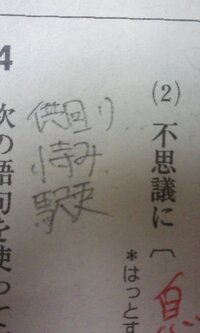 (2) 不思議に〔
*はっとす
供回り
恃み
駅吏
4
次の語句を使って